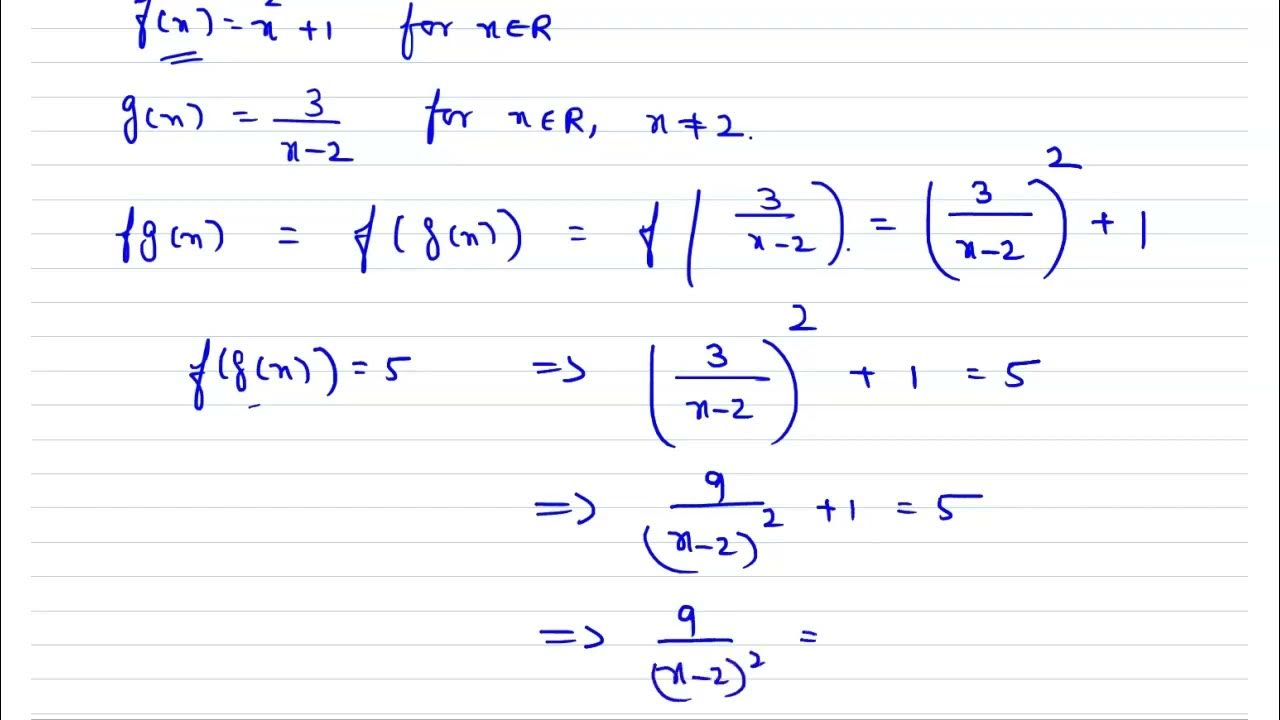 f(x) = x² + 1 for x∈R
g(x) = 3/(x-2) for x∈R, x ≠ 2.
fg(x) = f(g(x)) = f(3/(x-2)). = (3/(x-2))² + 1
f(g(x)) = 5 => (3/(x-2))² + 1 = 5
=> 9/(x-2)² + 1 = 5
=> 9/(x-2)² =